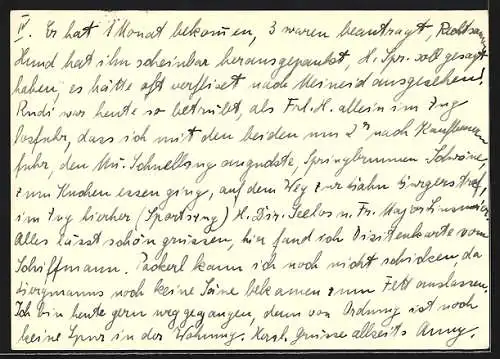 IV. Er hat 1 Monat bekommen, 3 waren beantragt, Rechtsanw.
Hund hat ihn scheinbar herausgepaukt, H. Spr. soll gesagt
haben, es hätte oft verfleist nach Meineid ausgesehen!
Rudi war heute so betrübt, als Frl. H. allein im Zug
losfuhr, dass ich mit den beiden um 2 nach Kaufbeuren
fuhr, den Mü. Schnellzug Springbrunnen
zum Kuchen essen ging, auf dem Weg zur Bahn
im Zug hierher (Sportzug) H. Dir. Seelos u. Fr. Major
Alles lässt schön grüssen, hier fand ich Visitenkarte von
Schiffmann. Packerl kann ich noch nicht schicken, da
Bergmanns noch keine bekamen zum Fett auslassen.
Ich bin heute gern weggegangen, denn von Ordnung ist noch
keine Spur in der Wohnung. Herzl. Grüsse allseits Anny.